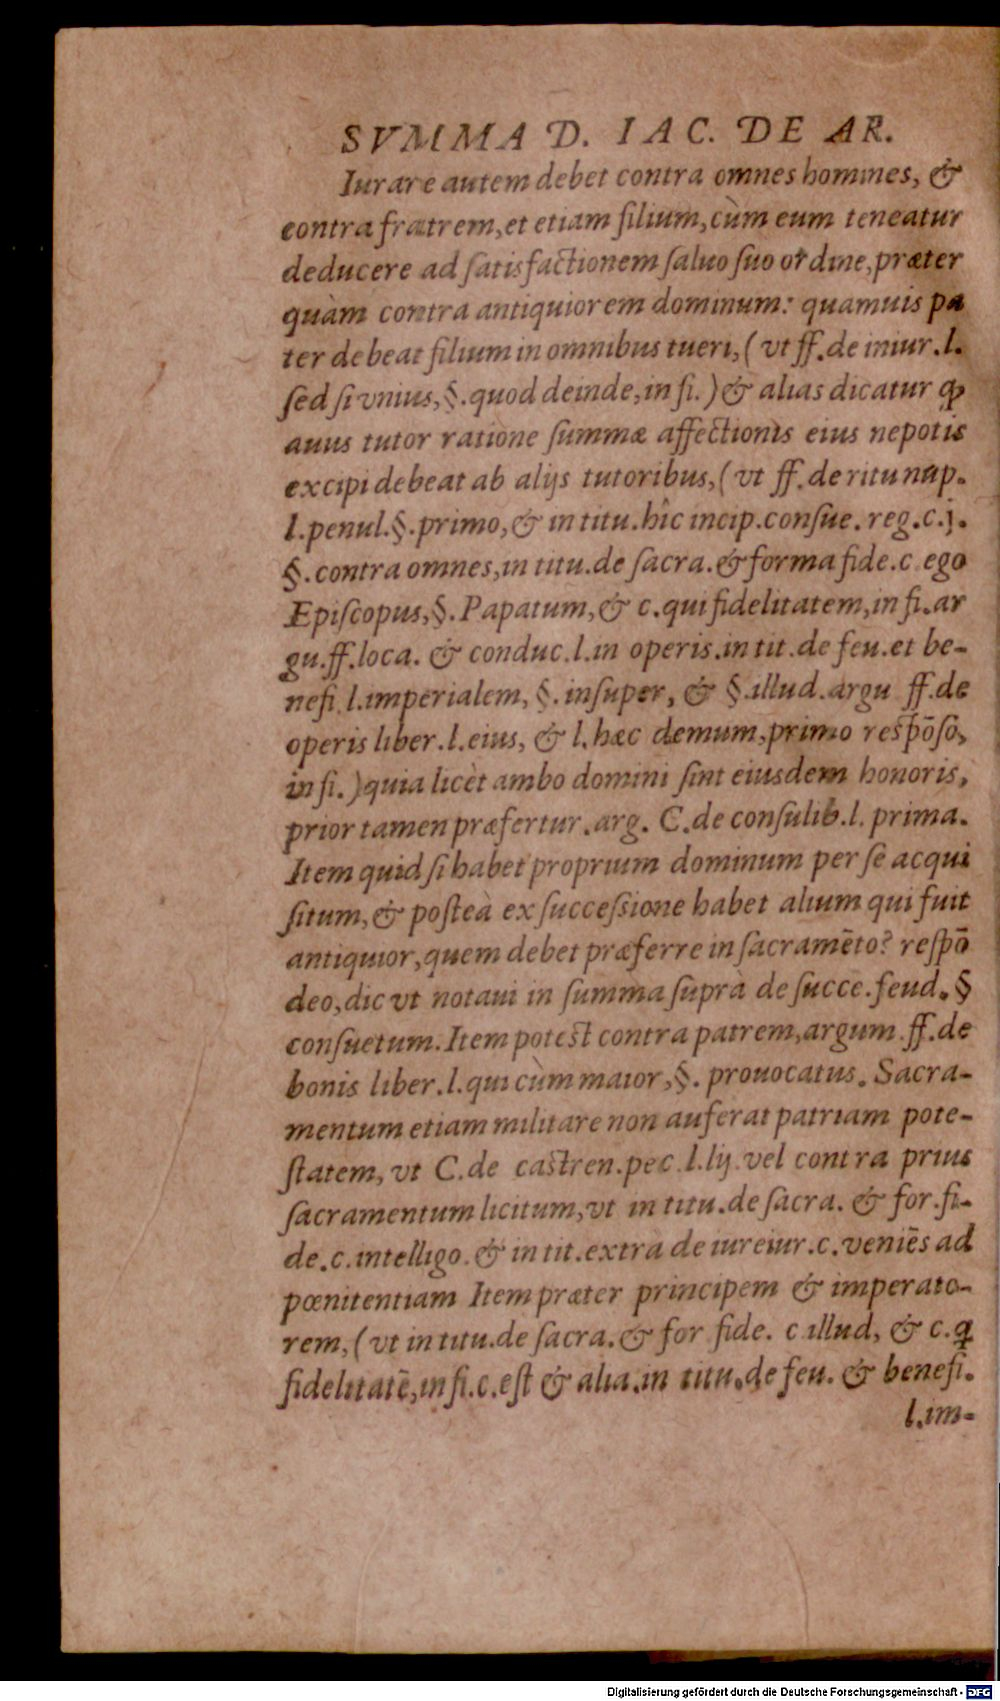 SVMMA D. IAC. DE AR.
Iurare autem debet contra omnes homines, &
contra fratrem, et etiam ſilium, cùm eum teneatur
deducere ad ſatisfactionem ſaluo ſuo ordine, præter
quàm contra antiquiorem dominum: quamuis pa
ter debeat filium in omnibus tueri, (vt ff. de iniur. l.
ſed ſi vnius, §. quod deinde, in fi.) & alias dicatur ꝙ
auus tutor ratione ſummæ affectionis eius nepotis
excipi debeat ab alijs tutoribus, (vt ff. de ritu nup.
l. penul. §. primo, & in titu. hîc incip. conſue. reg. c. j.
§. contra omnes, in titu. de ſacra. & forma fide. c ego
Epiſcopus, §. Papatum, & c. qui fidelitatem, in fi. ar
gu. ff. loca. & conduc. l. in operis. in tit. de feu. et be-
nefi. l. imperialem, §. inſuper, & §. illud. argu ff. de
operis liber. l. eius, & l. hæc demum, primo reſpōſo,
in fi.) quia licèt ambo domini ſint eiusdem honoris,
prior tamen præfertur. arg. C. de conſulib. l. prima.
Item quid ſi habet proprium dominum per ſe acqui
ſitum, & poſteà ex ſucceſsione habet alium qui fuit
antiquior, quem debet præferre in ſacramēto? reſpō
deo, dic vt notaui in ſumma ſuprà de ſucce. feud. §
conſuetum. Item poteſt contra patrem, argum. ff. de
bonis liber. l. qui cùm maior, §. prouocatus. Sacra-
mentum etiam militare non auferat patriam pote-
ſtatem, vt C. de caſtren. pec. l. lij. vel contra prius
ſacramentum licitum, vt in titu. de ſacra. & for. fi-
de. c. intelligo. & in tit. extra de iureiur. c. veniēs ad
pœnitentiam Item præter principem & imperato-
rem, (vt in titu. de ſacra. & for fide. c illud, & c. ꝗ
fidelitatē, in fi. c. eſt & alia. in titu. de feu. & benefi.
l. im-
Digitalisierung gefördert durch die Deutsche Forschungsgemeinschaft - DFG